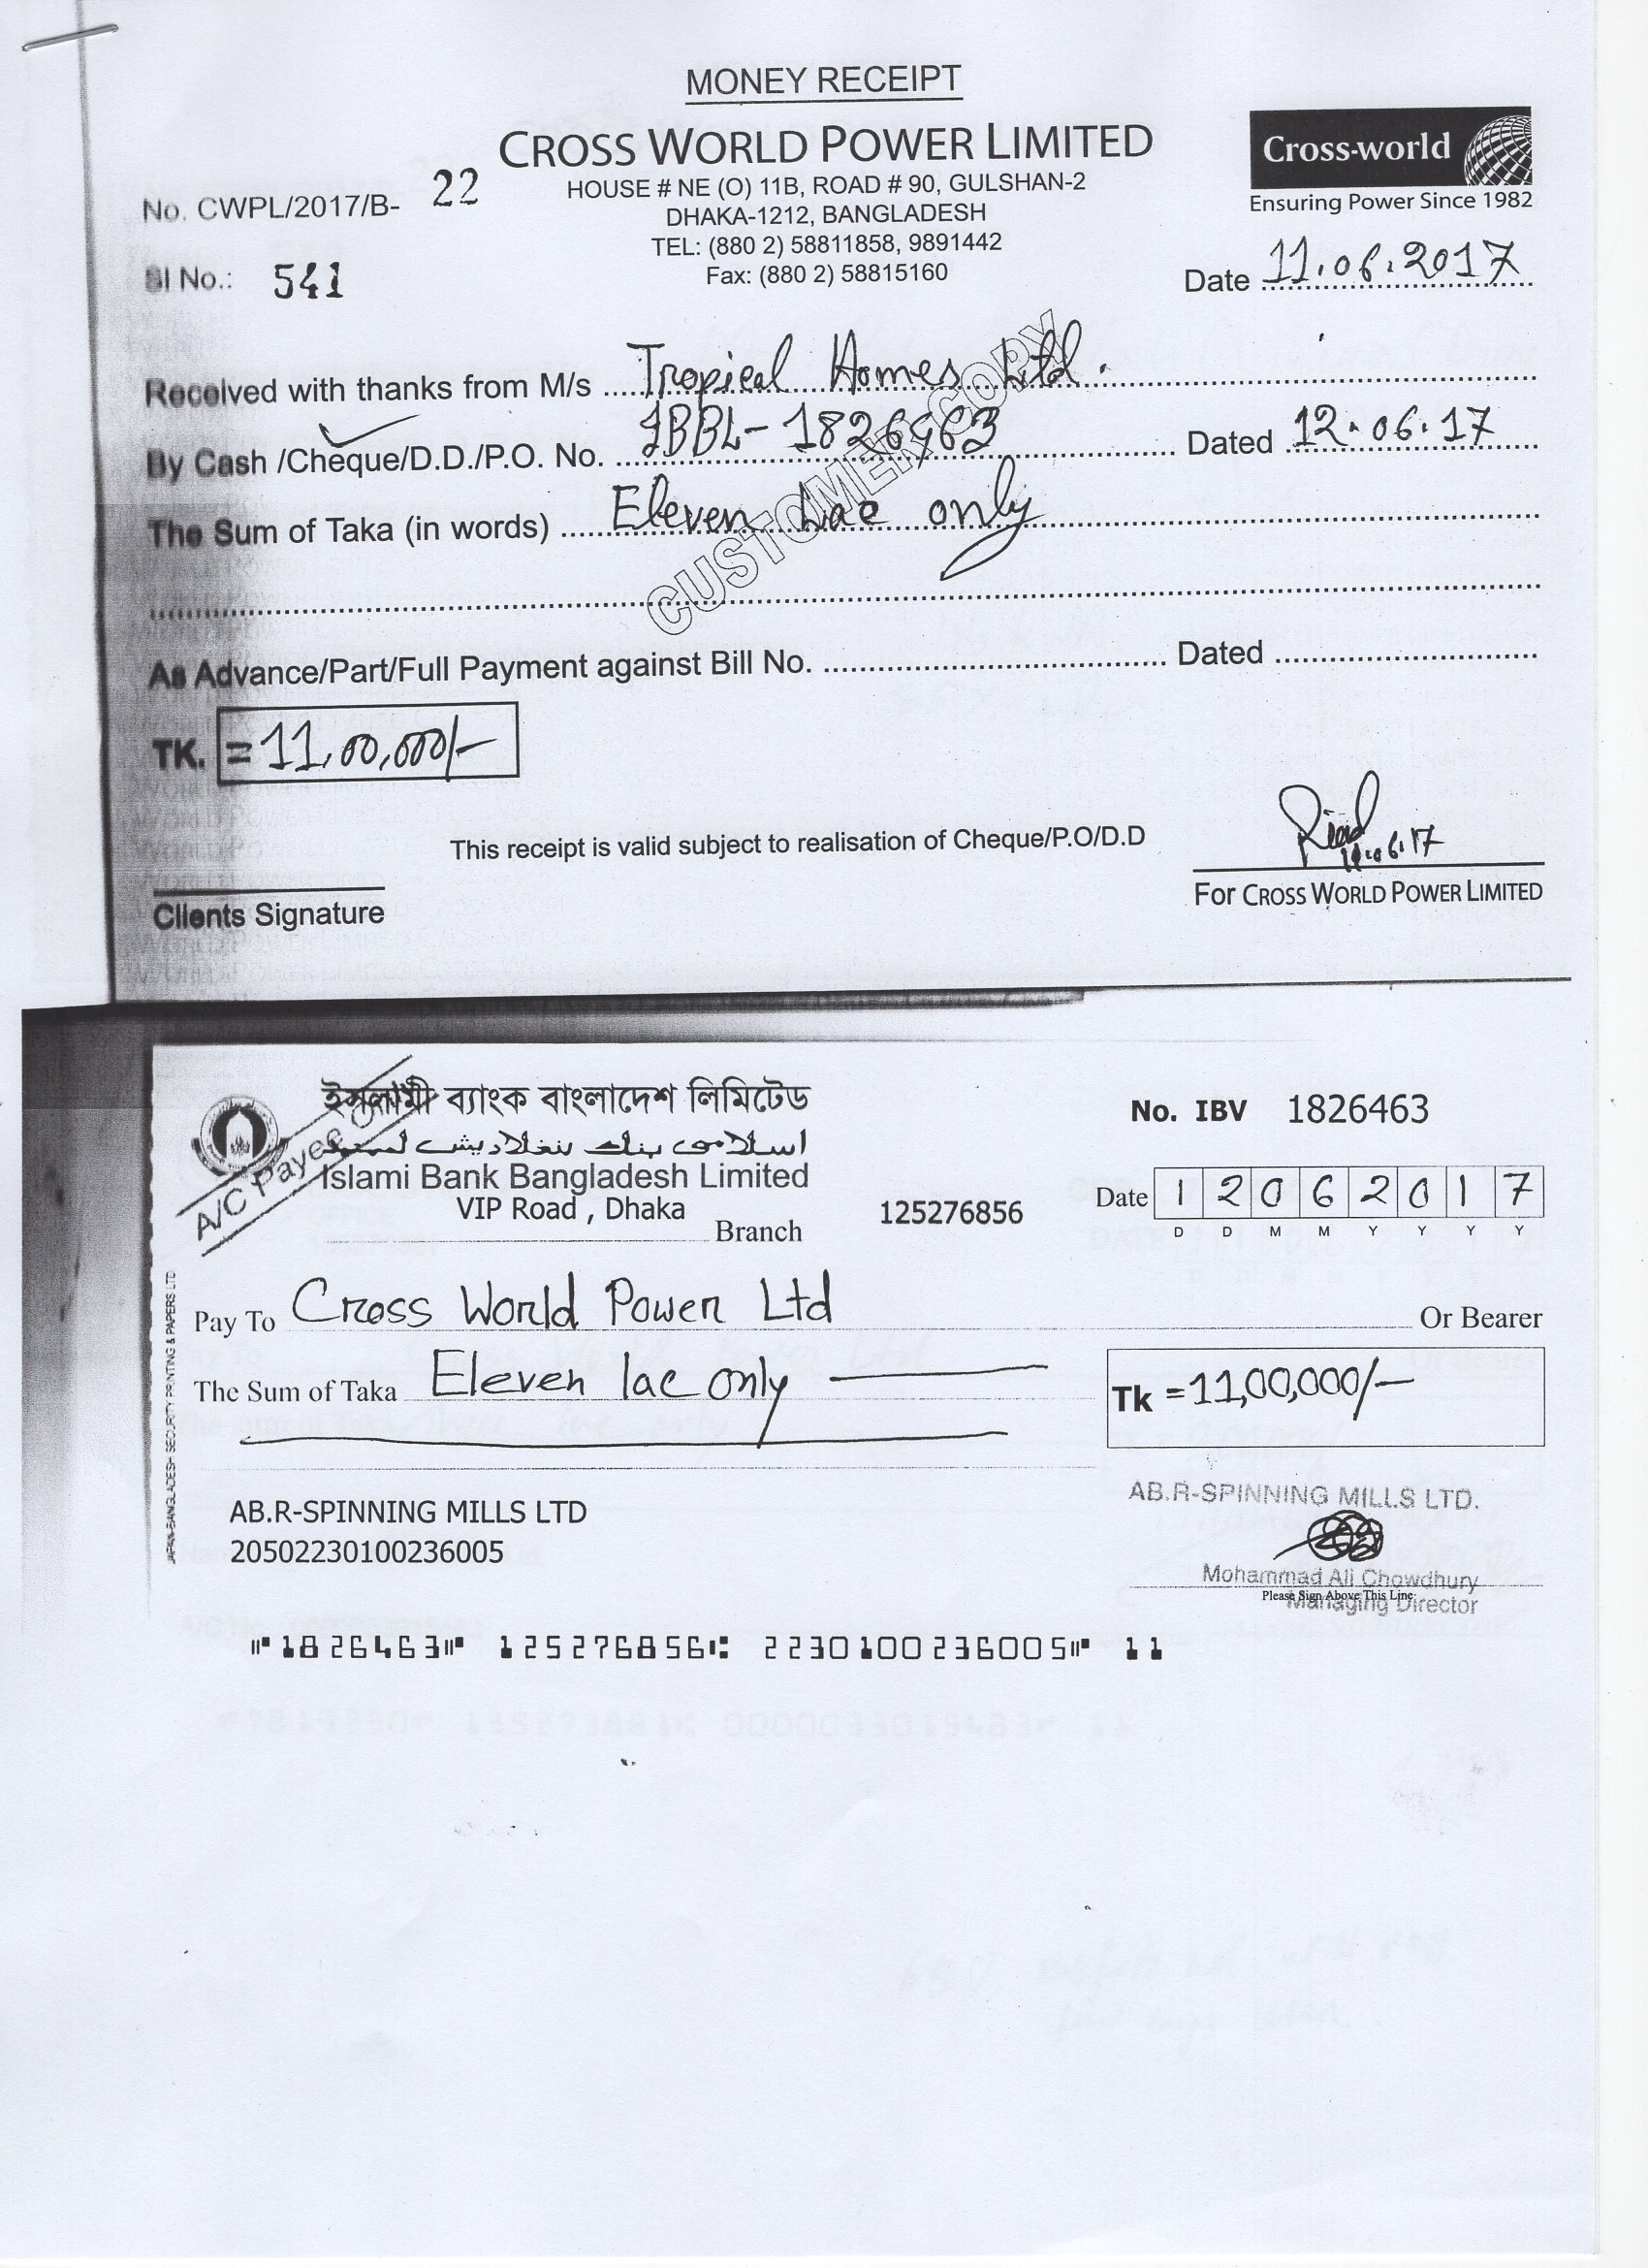 MONEY RECEIPT
CROSS WORLD POWER LIMITED
HOUSE # NE (O) 11B, ROAD # 90, GULSHAN-2
DHAKA-1212, BANGLADESH
TEL: (880 2) 58811858, 9891442
Fax: (880 2) 58815160
Cross-world
Ensuring Power Since 1982
No. CWPL/2017/B- 22
Sl No.: 541
Date 11.06.2017
Received with thanks from M/s Tropical Homes Ltd.
By Cash /Cheque/D.D./P.O. No. IBBL-1826463 Dated 12.06.17
The Sum of Taka (in words) Eleven Lac only
CUSTOMER COPY
As Advance/Part/Full Payment against Bill No. Dated
TK. =11,00,000/-
This receipt is valid subject to realisation of Cheque/P.O/D.D
11.06.17
Clients Signature
For CROSS WORLD POWER LIMITED
A/C Payee Only
ইসলামী ব্যাংক বাংলাদেশ লিমিটেড
اسلامى بنك بنغلاديش لميتيد
Islami Bank Bangladesh Limited
VIP Road , Dhaka Branch
125276856
No. IBV 1826463
Date 1 2 0 6 2 0 1 7
D D M M Y Y Y Y
Pay To Cross World Power Ltd Or Bearer
The Sum of Taka Eleven lac only
Tk =11,00,000/-
AB.R-SPINNING MILLS LTD
20502230100236005
AB.R-SPINNING MILLS LTD.
Mohammad Ali Chowdhury
Please Sign Above This Line
Managing Director
JAPAN-BANGLADESH SECURITY PRINTING & PAPERS LTD
⑈1826463⑈ 125276856⑆ 2230100236005⑈ 11